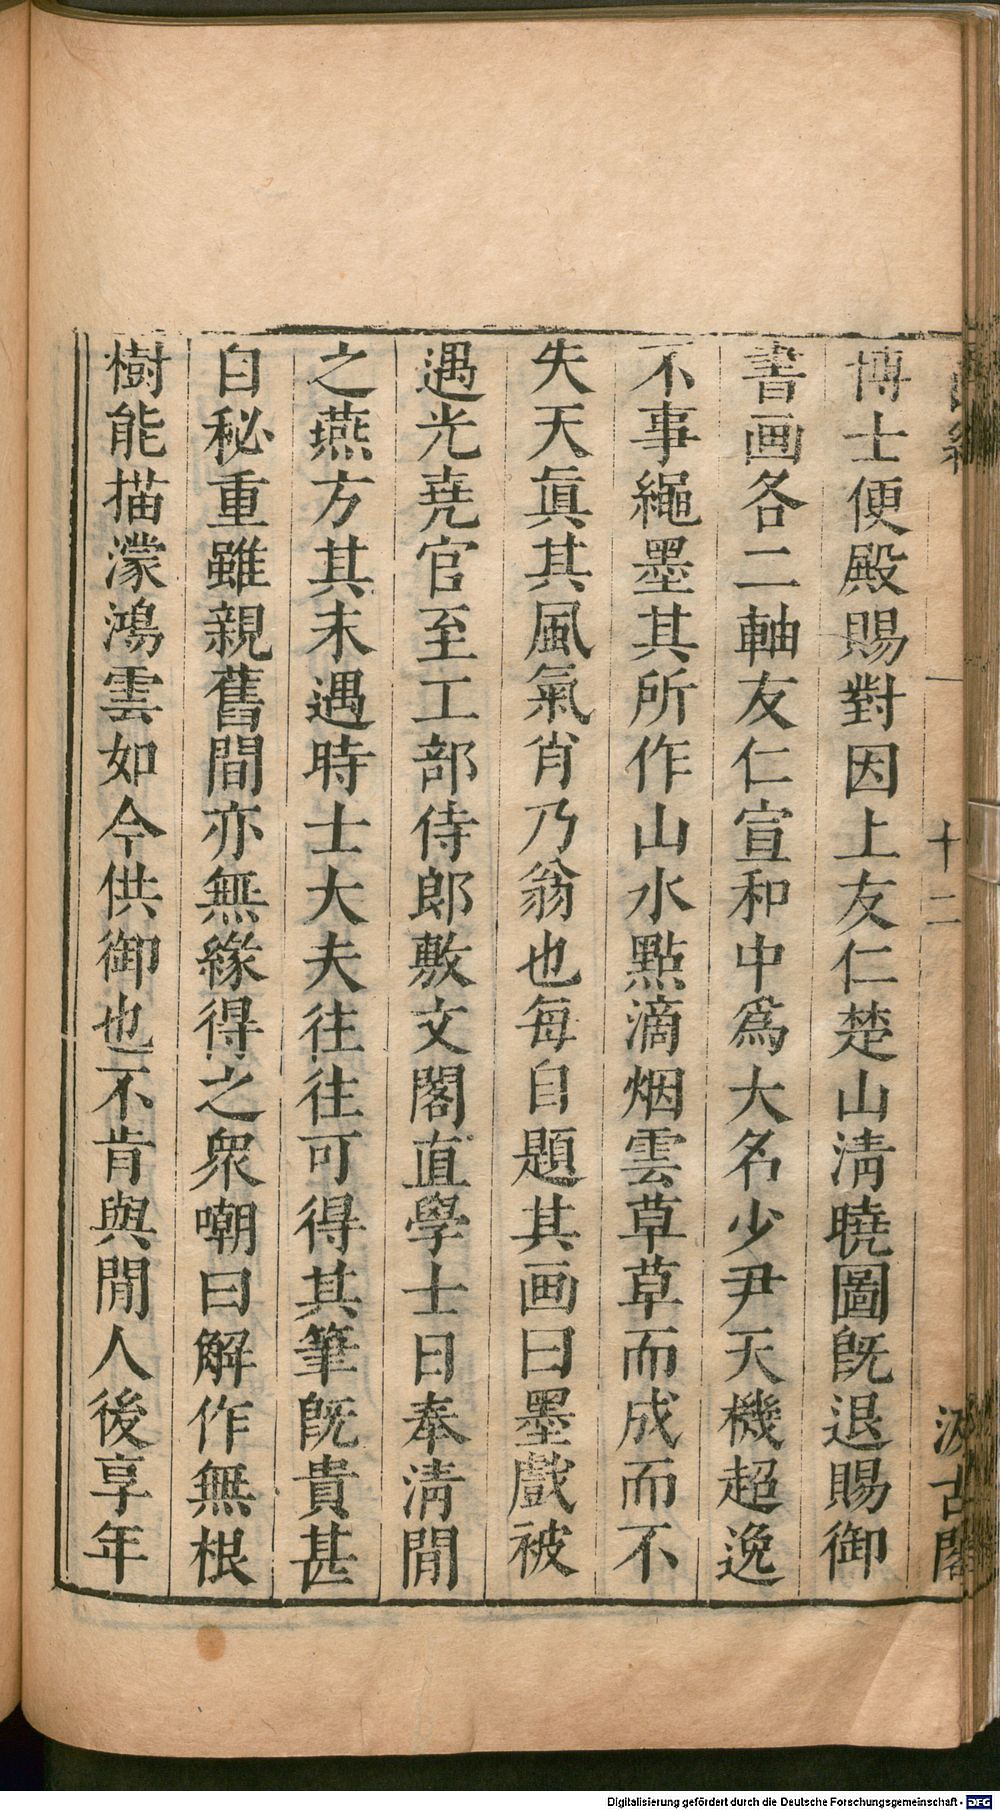 十二
汲古閣
博士便殿賜對因上友仁楚山淸曉圖旣退賜御
書画各二軸友仁宣和中爲大名少尹天機超逸
不事繩墨其所作山水點滴烟雲草草而成而不
失天眞其風氣肖乃翁也每自題其画曰墨戲被
遇光堯官至工部侍郎敷文閣直學士日奉淸閒
之燕方其未遇時士大夫往往可得其筆旣貴甚
自秘重雖親舊間亦無緣得之衆嘲曰解作無根
樹能描濛鴻雲如今供御也不肯與閒人後享年
Digitalisierung gefördert durch die Deutsche Forschungsgemeinschaft - DFG